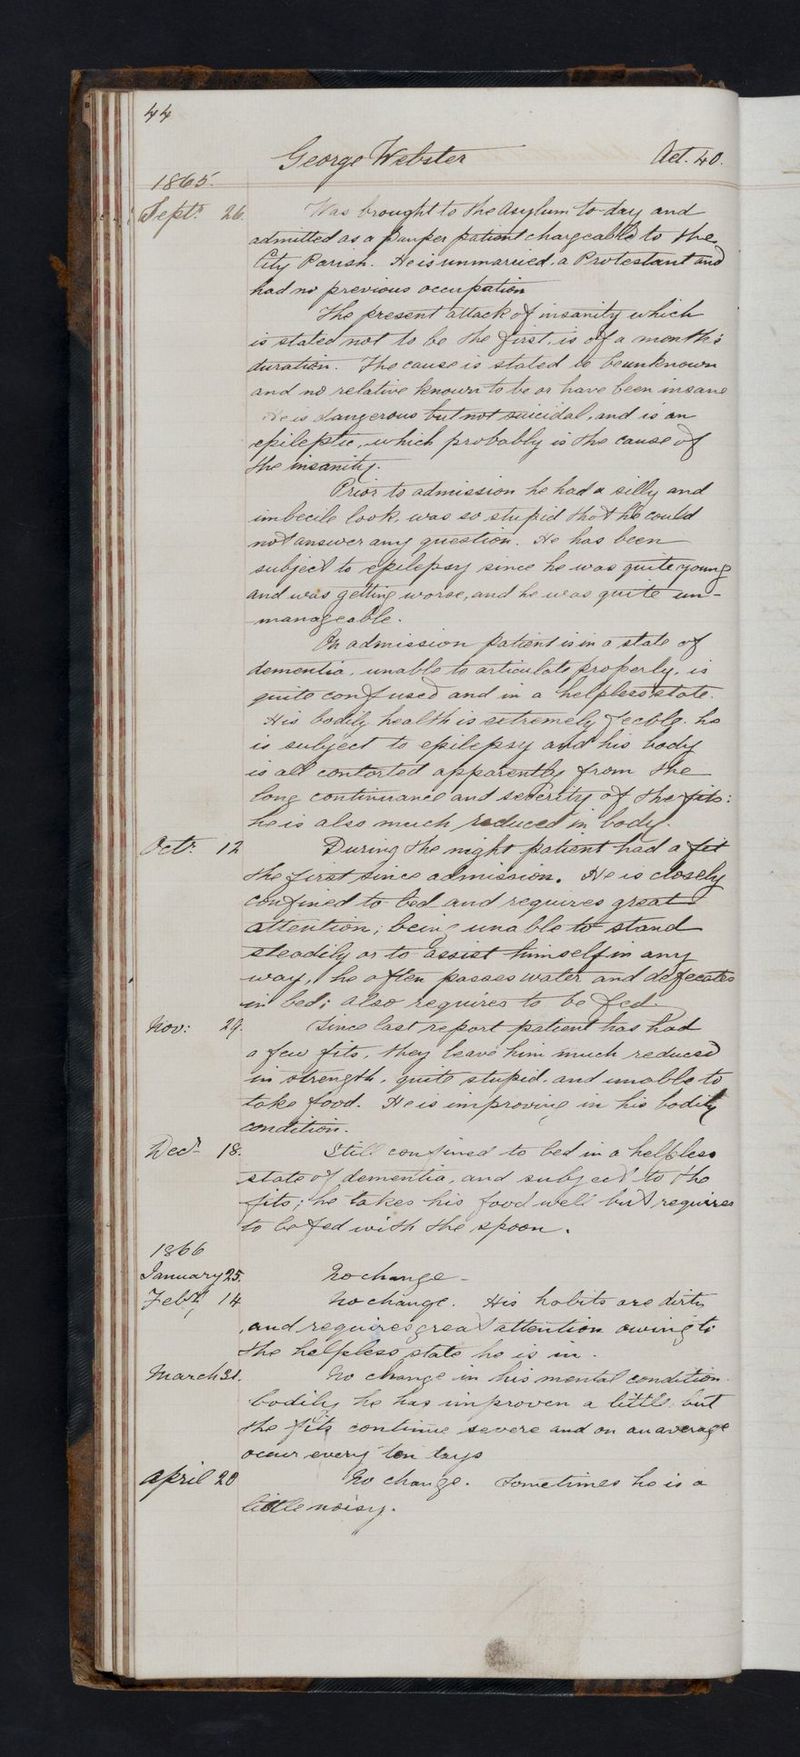 44
George Webster Aet. 40.
1865.
Septr. 26. Was brought to the Asylum to day and
admitted as a Pauper patient chargeable to the
City Parish. He is unmarried, a Protestant and
had no previous occupation
The present attack of insanity which
is stated not to be the first, is of a month's
duration. The cause is stated to be unknown
and no relative known to be or have been insane
He is dangerous but not suicidal, and is an
epileptic, which probably is the cause of
the insanity.
Prior to admission he had a silly and
imbecile look, was so stupid that he could
not answer any question. He has been
subject to epilepsy since he was quite young
and was getting worse, and he was quite un-
manageable.
On admission patient is in a state of
dementia, unable to articulate properly, is
quite confused and in a helpless state.
His bodily health is extremely feeble. he
is subject to epilepsy and his body
is all contorted apparently from the
long continuance and severity of the fits:
he is also much reduced in body.
Octr. 12 During the night patient had a fit
the first since admission. He is closely
confined to bed and requires great
attention; being unable to stand
steadily or to assist himself in any
way, he often passes water and defecates
in bed; also requires to be fed.
Nov: 29. Since last report patient has had
a few fits, they leave him much reduced
in strength, quite stupid, and unable to
take food. He is improving in his bodily
condition.
Decr. 18. Still confined to bed in a helpless
state of dementia, and subject to the
fits; he takes his food well but requires
to be fed with the spoon.
1866
January 25. No change -
Feby. 14 No change. His habits are dirty
and requires great attention owing to
the helpless state he is in.
March 31. No change in his mental condition.
bodily he has improven a little but
the fits continue severe and on an average
occur every ten days
April 20 No change. Sometimes he is a
little noisy.